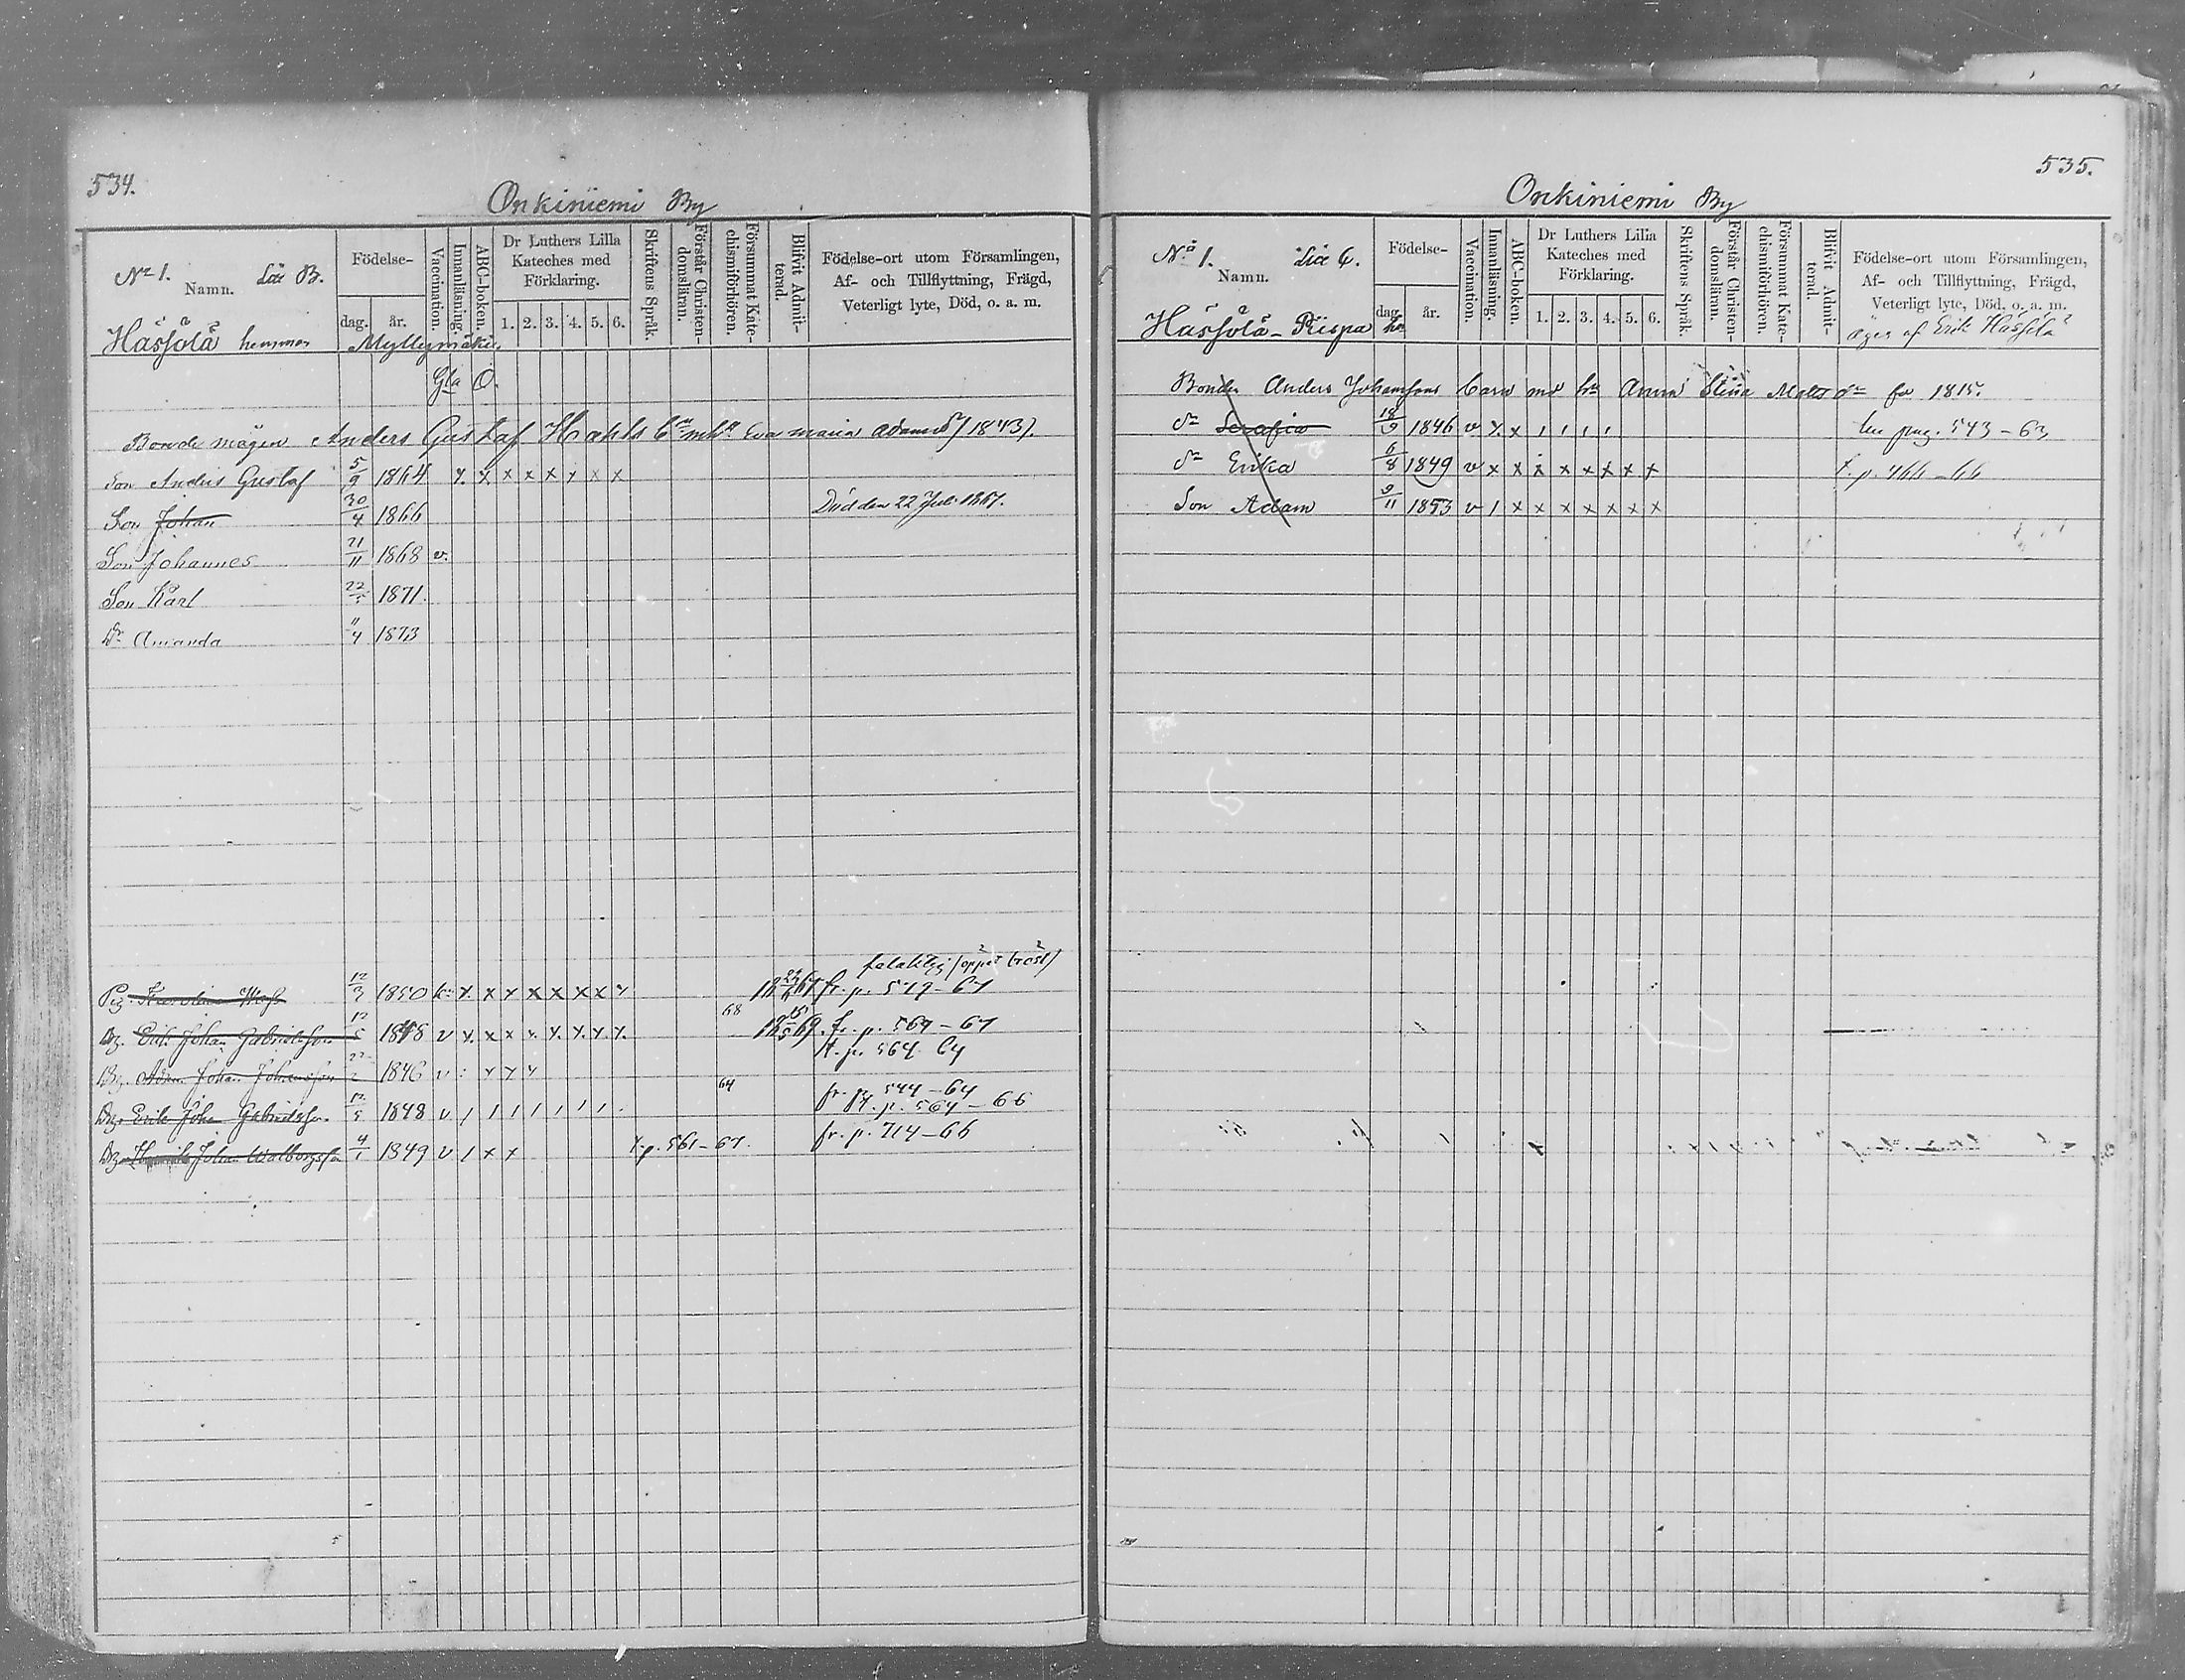 534.
Onkiniemi By
No 1. Namn. Litt B.
Födelse-
dag. år.
Vaccination.
Innanläsning.
ABC-boken.
Dr Luthers Lilla Kateches med Förklaring.
1. 2. 3. 4. 5. 6.
Skriftens Språk.
Förstår Christendomsläran.
Försummat Katechismiförhören.
Blifvit Admitterad.
Födelse-ort utom Församlingen,
Af- och Tillflyttning, Frägd,
Veterligt lyte, Död, o. a. m.
Hässölä hemman Myllymäki.
Gla O.
Bonde mågen Anders Gustaf Hahls Eva maria Adams 1843).
Son Anders Gustaf 5/9 1864 x x x x x x x x
Son Johan 30/4 1866 Död den 22 Juli 1867.
Son Johannes 21/11 1868 v.
Son Karl 22 1871.
Dr Amanda 11/4 1873
(öppet
Pig. 12/3 1850 x x x x x x x x fr. p. 519-67
Dg. Erik Johan Gabrielsson 12/5 1848 v x x x x x x x x 68 fr. p. 569-67
t. p. 564 64
Dg. Adam Johan Johansson 22/2 1846 v
64 fr. p. 544-64
Dg. Erik Johan Gabrielsson 12/5 1848 v / / / / / / / t. p. 564-66
Dg. Johan Walborgsson 4/1 1849 v / x x t. p. 561-67. fr. p. 714-66
535.
Onkiniemi By
No 1. Namn. Litt C.
Födelse-
dag. år.
Vaccination.
Innanläsning.
ABC-boken.
Dr Luthers Lilla Kateches med Förklaring.
1. 2. 3. 4. 5. 6.
Skriftens Språk.
Förstår Christendomsläran.
Försummat Katechismiförhören.
Blifvit Admitterad.
Födelse-ort utom Församlingen,
Af- och Tillflyttning, Frägd,
Veterligt lyte, Död, o. a. m.
Hässölä-Riispa hn äges af Erik Hässölä
Bonden Anders Johanssons barn med hu Anna Stina Mats dr 1815.
dr Serafia 18/9 1846 v x x / / / / pag. 543-63
dr Erika 6/8 1849 v x x x x x x x x t. p. 466-66
Son Adam 9/11 1853 v / x x x x x x x